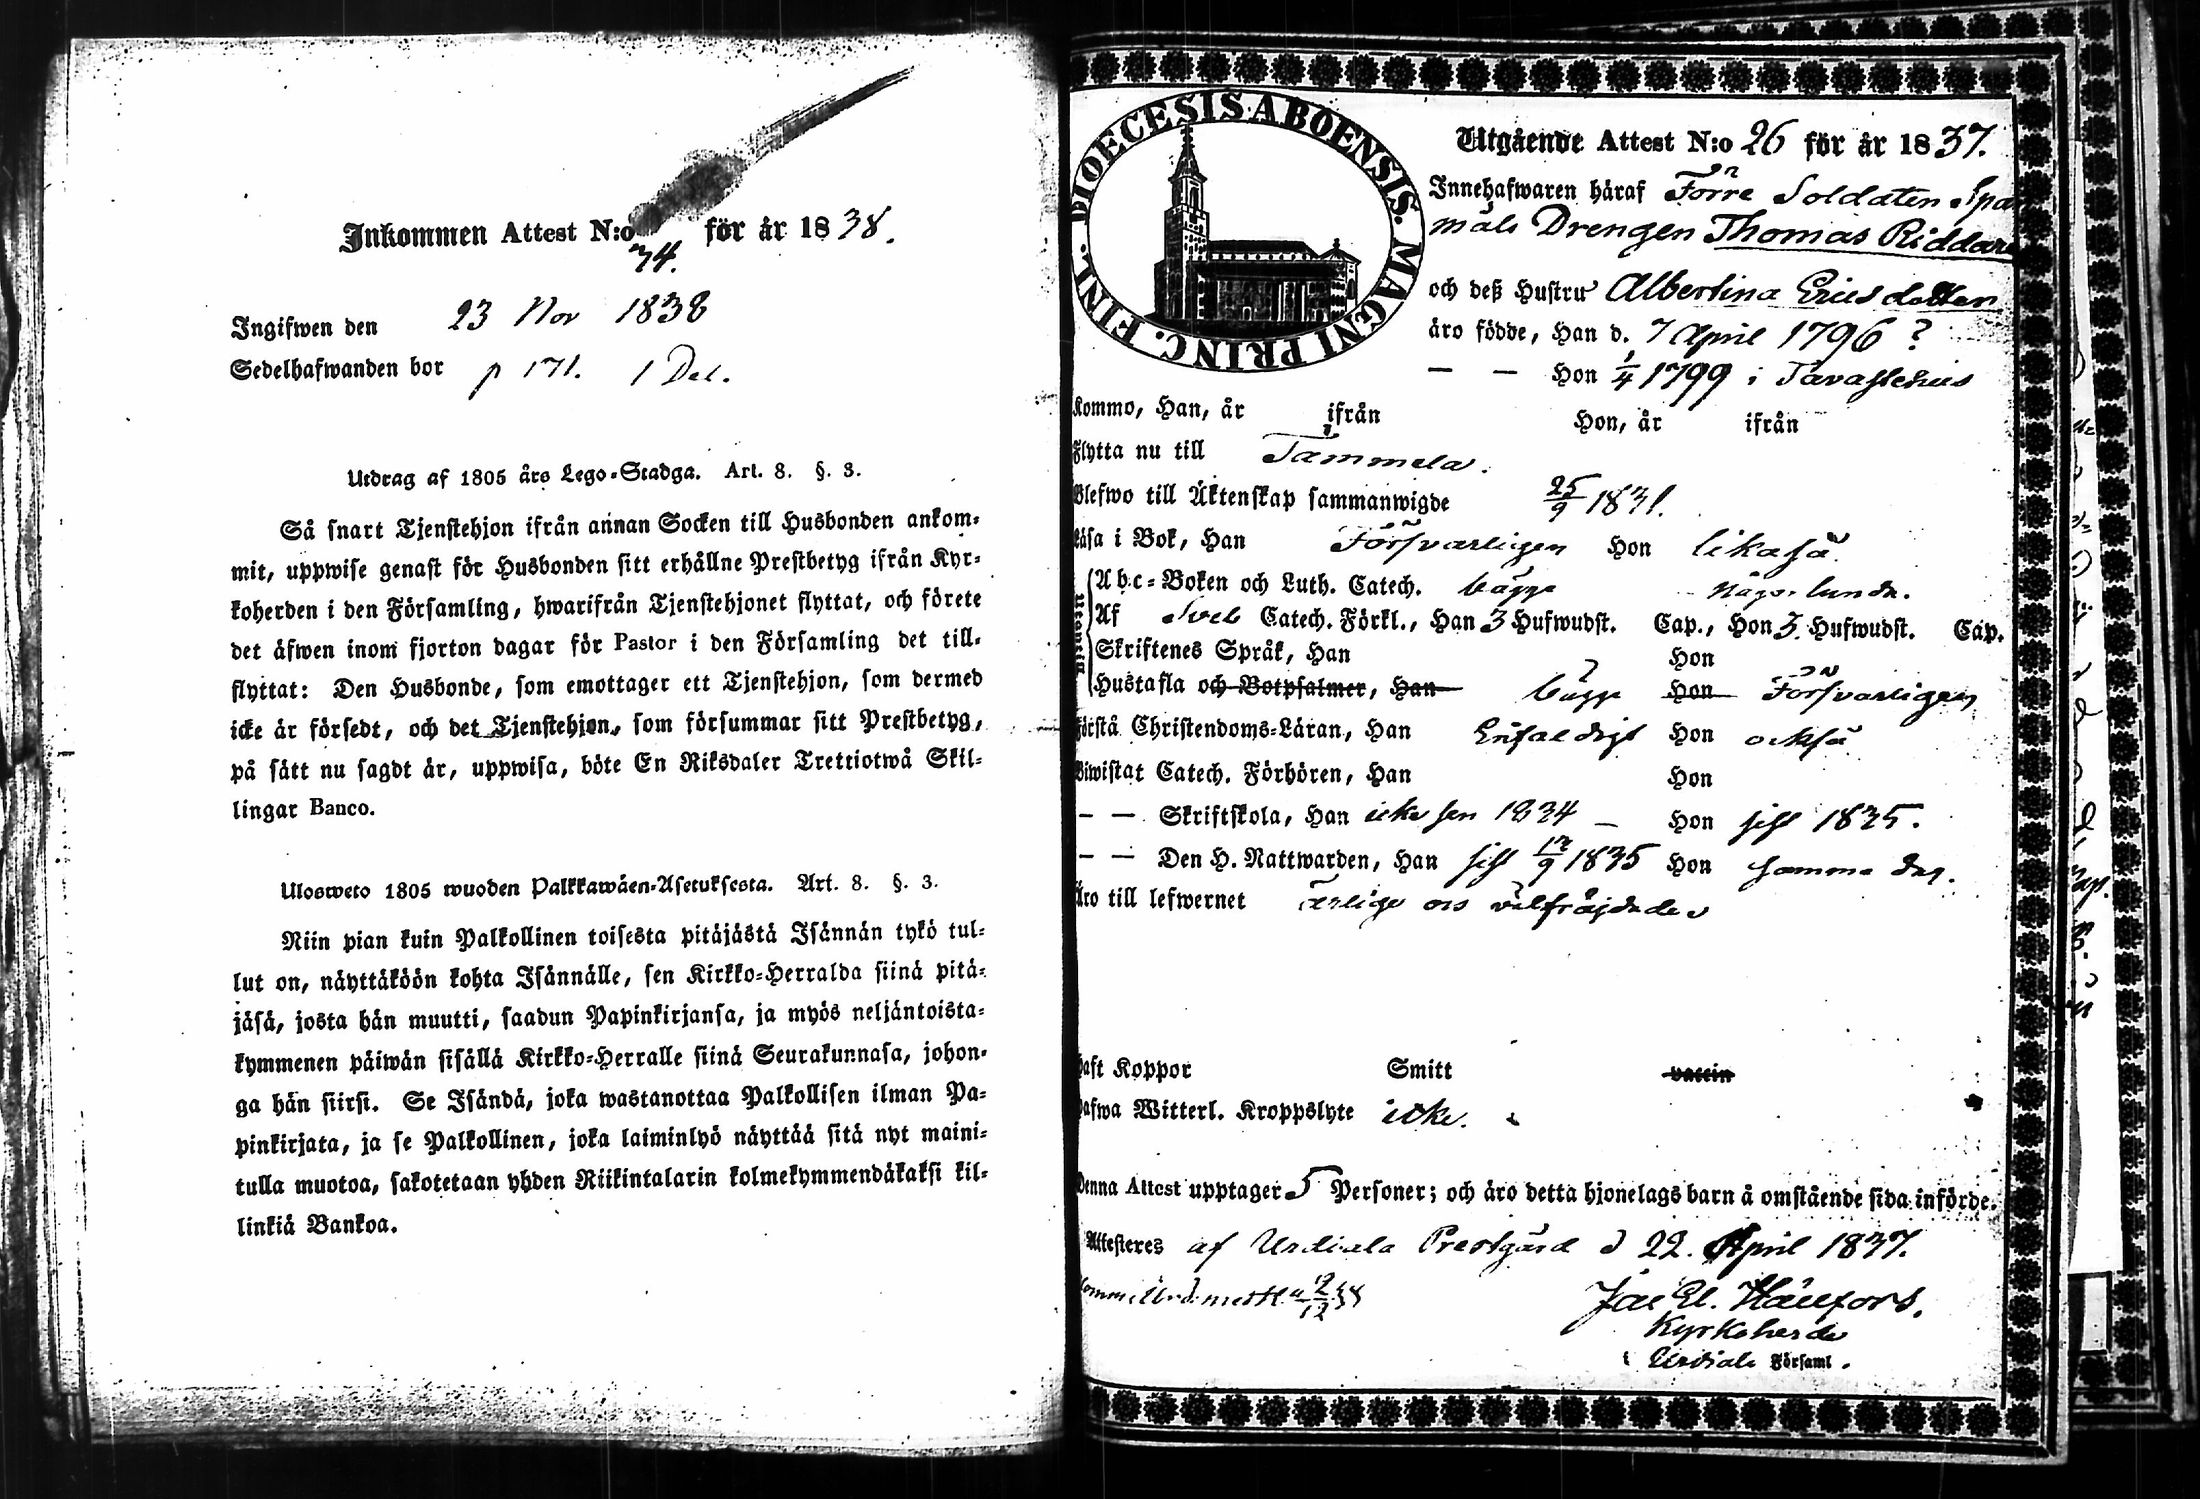 Inkommen Attest N:o 74. för år 1838.
Ingifwen den 23 Nov 1838
Sedelhafwanden bor p 171. 1 Del.
Utdrag af 1805 års Lego-Stadga. Art. 8. §. 3.
Så snart Tjenstehjon ifrån annan Socken till Husbonden ankom-
mit, uppwise genast för Husbonden sitt erhållne Prestbetyg ifrån Kyr-
koherden i den Församling, hwarifrån Tjenstehjonet flyttat, och förete
det äfwen inom fjorton dagar för Pastor i den Församling det till-
flyttat: Den Husbonde, som emottager ett Tjenstehjon, som dermed
icke är försedt, och det Tjenstehjon, som försummar sitt Prestbetyg,
på sätt nu sagdt är, uppwisa, böte En Riksdaler Trettiotwå Skil-
lingar Banco.
Ulosweto 1805 wuoden Palkkawäen-Asetuksesta. Art. 8. §. 3.
Niin pian kuin Palkollinen toisesta pitäjästä Isännän tykö tul-
lut on, näyttäköön kohta Isännälle, sen Kirkko-Herralda siinä pitä-
jäsä, josta hän muutti, saadun Papinkirjansa, ja myös neljäntoista-
kymmenen päiwän sisällä Kirkko-Herralle siinä Seurakunnasa, johon-
ga hän siirsi. Se Isändä, joka wastanottaa Palkollisen ilman Pa-
pinkirjata, ja se Palkollinen, joka laiminlyö näyttää sitä nyt maini-
tulla muotoa, sakotetaan yhden Riikintalarin kolmekymmendäkaksi kil-
linkiä Bankoa.
DIOECESIS ABOENSIS. MAGNI PRINC. FINL.
Utgående Attest N:o 26 för år 1837.
Innehafwaren häraf Förre Soldaten
måls Drengen Thomas Riddare
och deß Hustru Albertina Ericsdotter
äro födde, Han d. 7 April 1796 ?
— — Hon 1/4 1799 i Tavastehus
Kommo, Han, år ifrån Hon, år ifrån
Flytta nu till Tammela.
Blefwo till Äktenskap sammanwigde 25/9 1831.
Läsa i Bok, Han Försvarligen Hon likaså
Abc-Boken och Luth. Catech. bägge
Af Sveb Catech. Förkl., Han 3 Hufwudst. Cap., Hon 3. Hufwudst. Cap.
Skriftenes Språk, Han Hon
Hustafla och Botpsalmer, Han bägge Hon Försvarligen
Förstå Christendoms-Läran, Han Enfaldigt Hon också
Biwistat Catech. Förhören, Han Hon
— — Skriftskola, Han icke sen 1834 — Hon sist 1835.
— — Den H. Nattwarden, Han sist 13/9 1835 Hon samma dag.
Äro till lefwernet ärlige och välfräjdade
Haft Koppor Smitt vaccin
Hafwa Witterl. Kroppslyte icke.
Denna Attest upptager 5 Personer; och äro detta hjonelags barn å omstående sida införde.
Attesteres af Urdiala Prestgård d 22. April 1837.
Kyrkoherde
i Urdiala Församl.